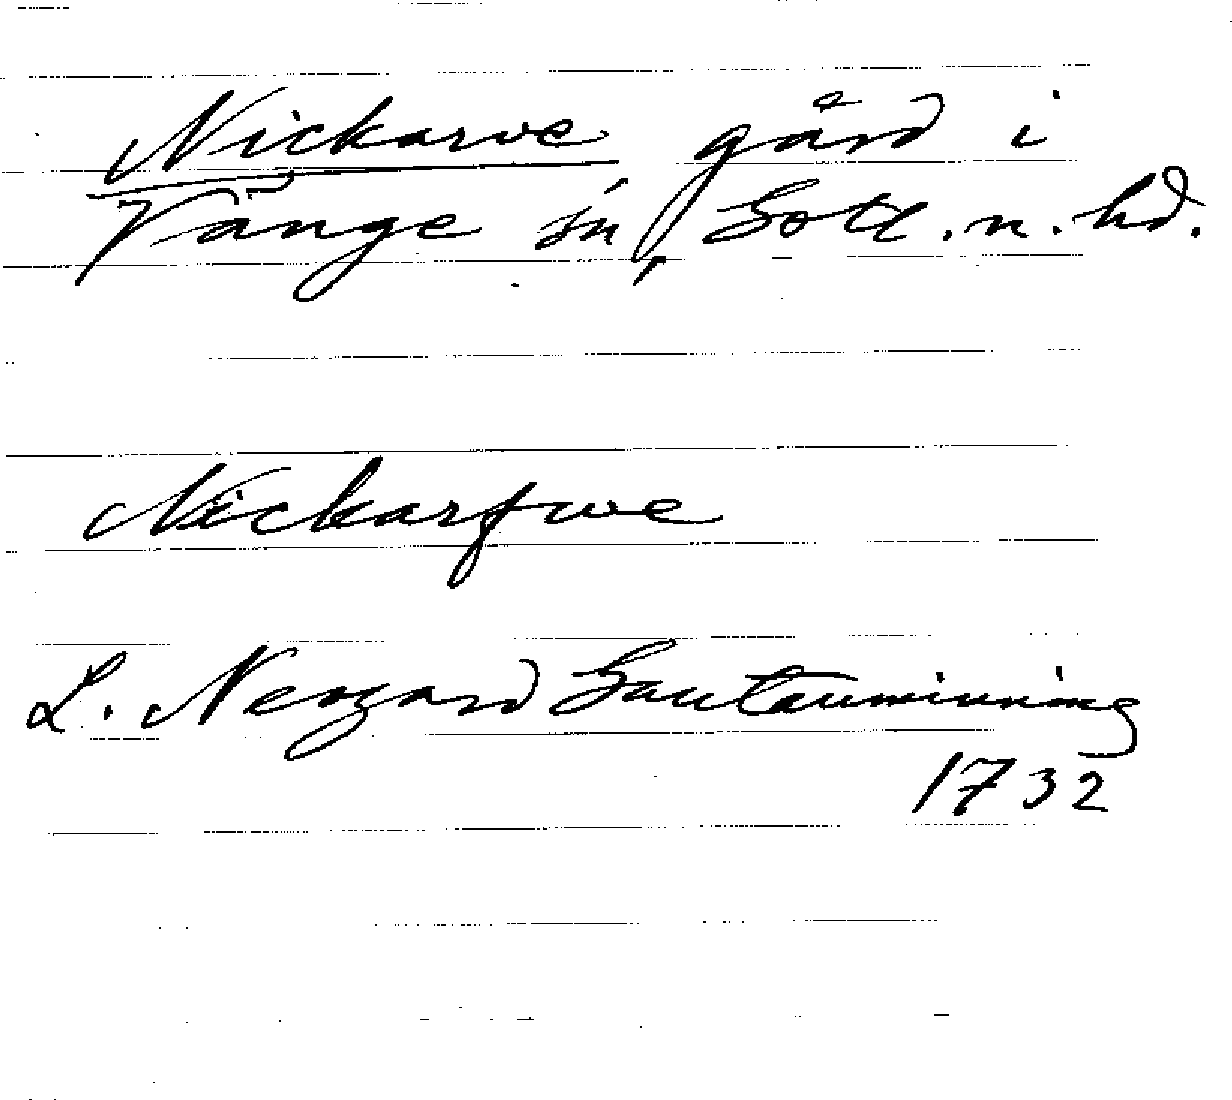 Nickarve gård i
Vänge sn, Gotl. n. hd.
Nickarfwe
L. Neogard Gautauminning
1732